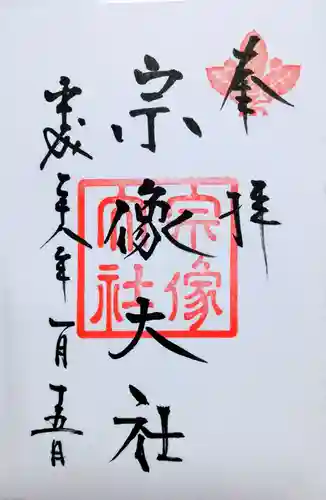 奉拝
宗像大社
宗像
大社
平成二十八年一月十五日